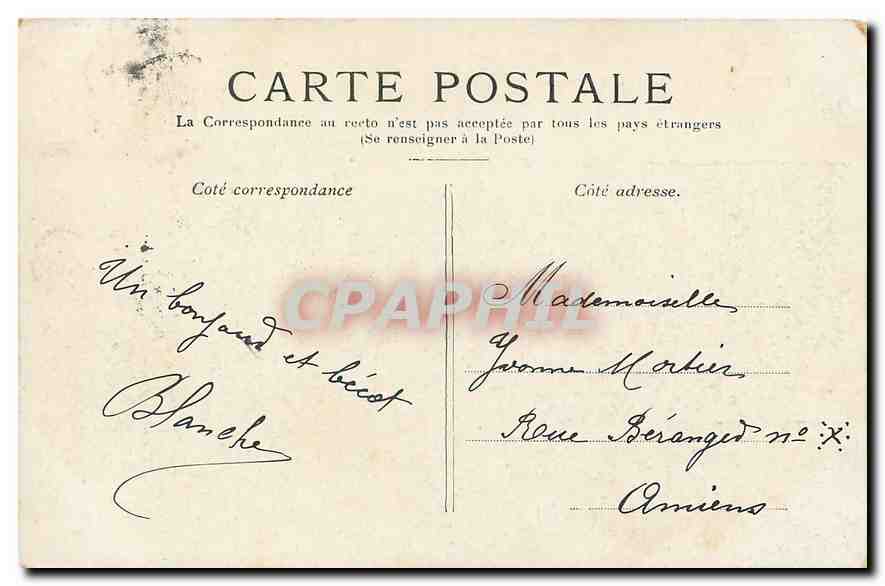 CARTE POSTALE
La Correspondance au recto n'est pas acceptée par tous les pays étrangers
(Se renseigner à la Poste)
Coté correspondance
Un bonjour et bécot
Blanche
Côté adresse.
Mademoiselle
Yvonne Mortier
Rue Béranger no .X.
Amiens
CPAPHIL